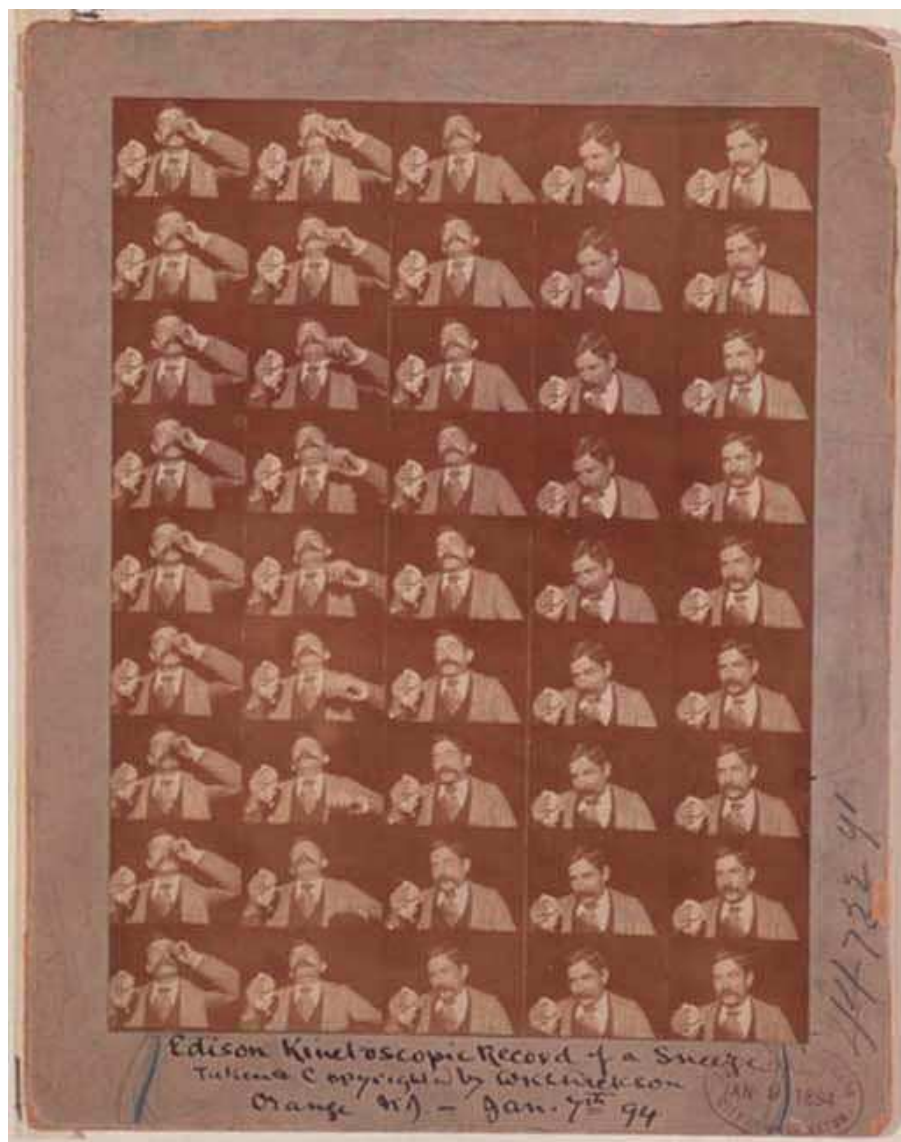 Edison Kinetoscopic Record of a Sneeze
Taken & Copyrighted by W.K.L. Dickson
Orange N.J. — Jan. 7th 94
JAN 9 1894